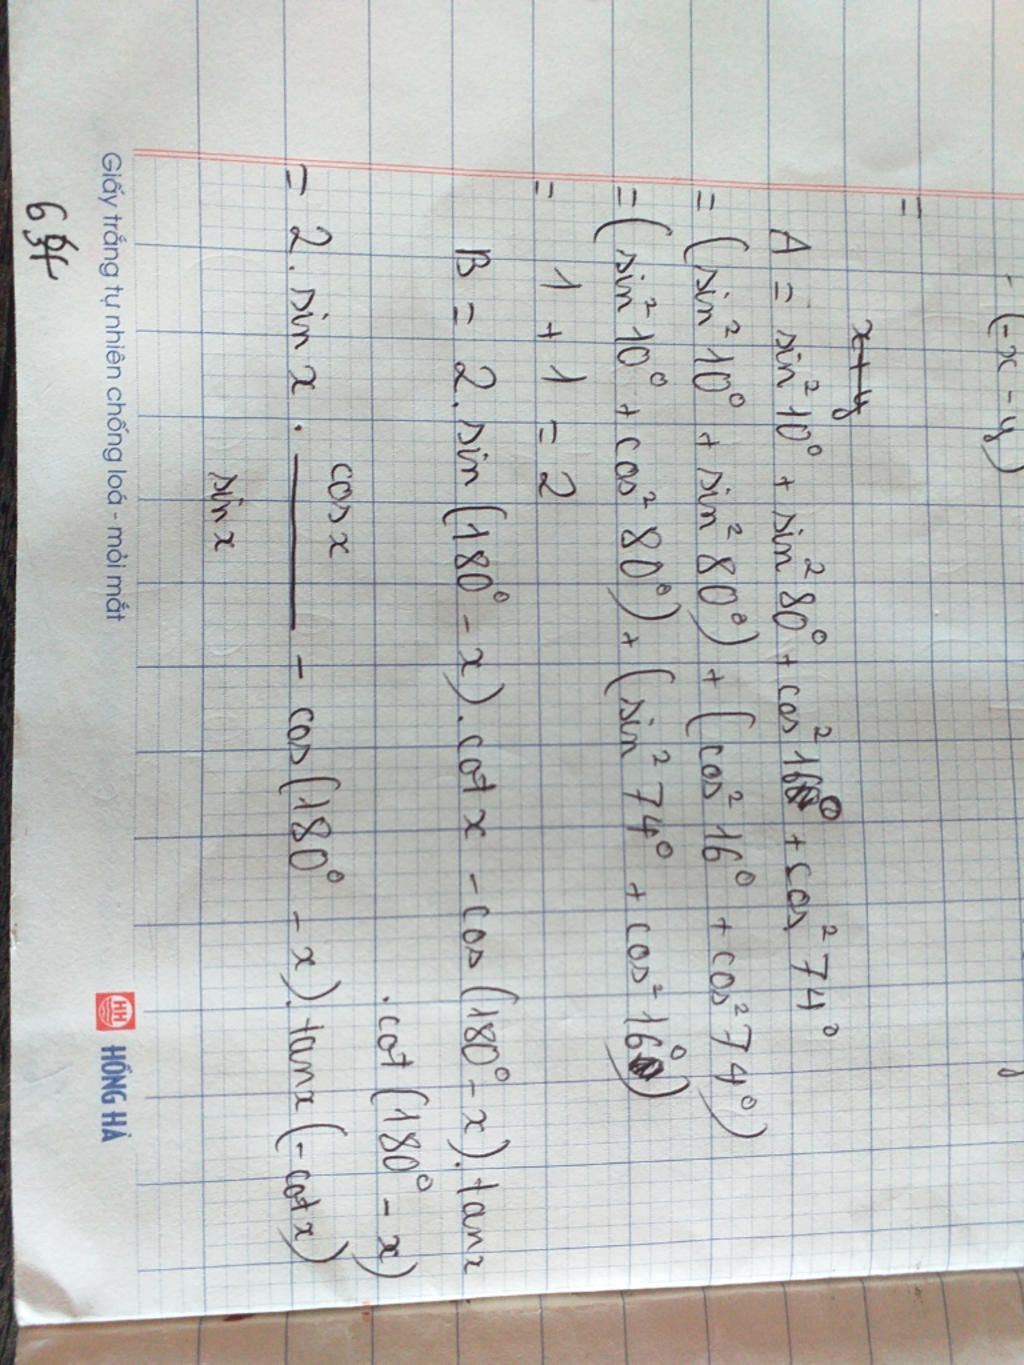 - (-x - y)
=
A = sin² 10° + sin² 80° + cos² 16° + cos² 74°
= (sin² 10° + sin² 80°) + (cos² 16° + cos² 74°)
= (sin² 10° + cos² 80°) + (sin² 74° + cos² 16°)
= 1 + 1 = 2
B = 2. sin (180° - x). cot x - cos (180° - x). tan x
. cot (180° - x)
= 2. sin x . cos x / sin x - cos (180° - x). tan x (- cot x)
Giấy trắng tự nhiên chống loá - mỏi mắt
HH HỒNG HÀ